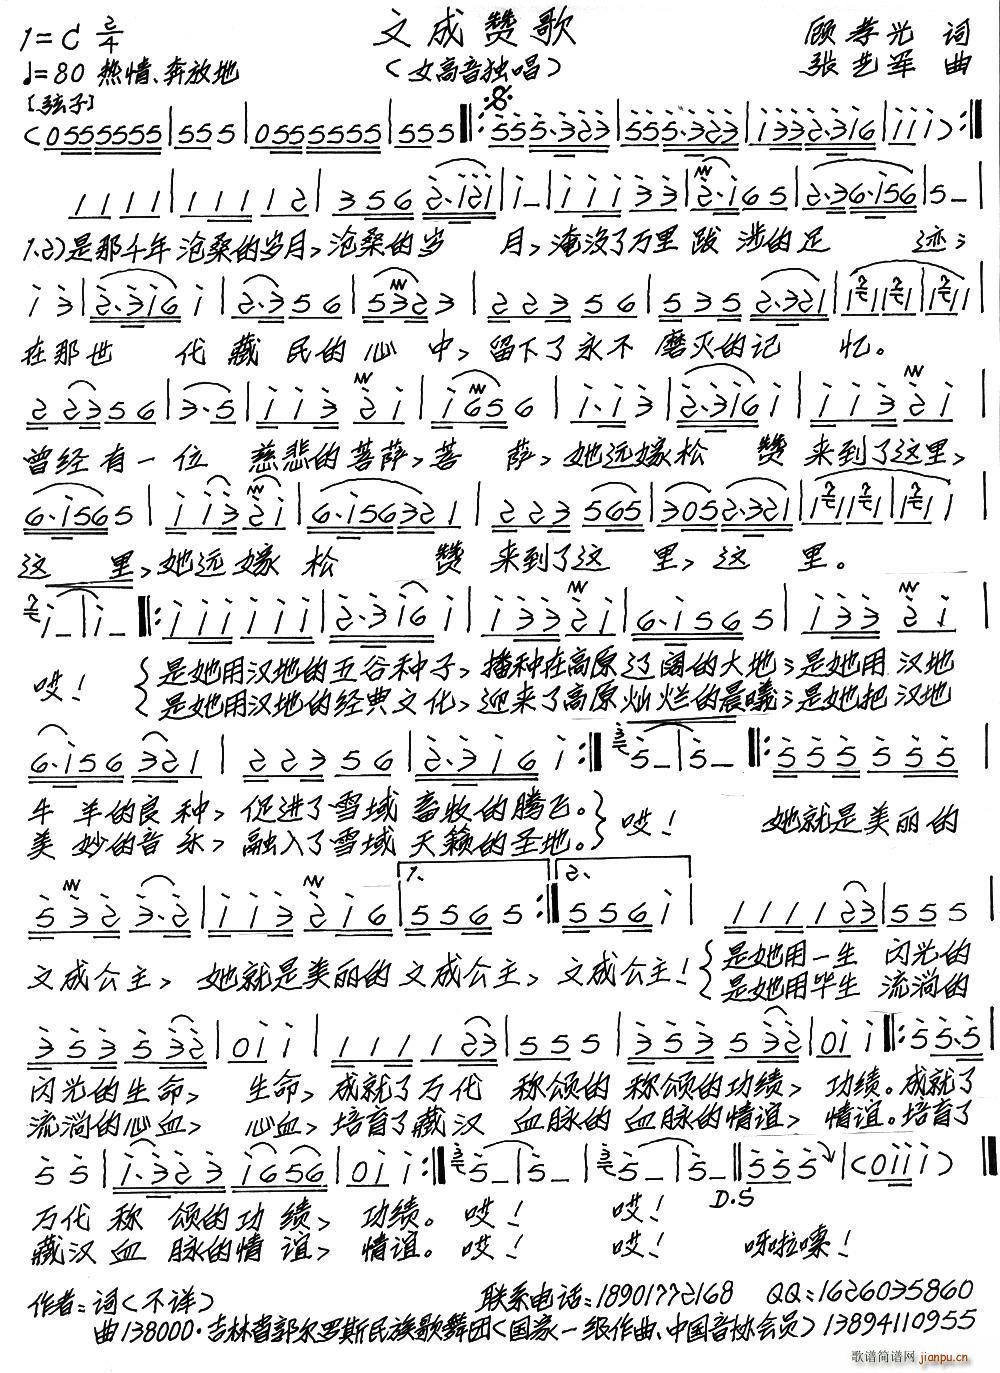 文成赞歌
1=C 2/4
顾孝光 词
♩=80 热情、奔放地
(女高音独唱)
张艺军 曲
[弦子]
(0555 5555|55 5|0555 5555|55 5‖:555.323|555.323|1332.316|11 1):‖
11 11|111 12|35 6 2.121|1-|11133|2.165|2.36.156|5-|
1.2)是那千年沧桑的岁月,沧桑的岁 月,淹没了万里跋 涉的足 迹;
13|2.3161|2.356|5323|22356|5352.321|
在那世 代藏 民的心 中,留下了永不 磨灭的记 忆。
22356|3.5|11321|1656|1.13|2.3161|11321|
曾经有一位 慈悲的菩萨,菩 萨,她远嫁松 赞 来到了这里,
6.1565|11321|6.156321|223565|3052.321|
这 里,她远嫁 松 赞 来到了这 里,这 里。
1-|1-‖:111111|2.3161|13321|6.1565|13321|
哎! 是她用汉地的五谷种子,播种在高原辽阔的大地;是她用 汉地
是她用汉地的经典文化,迎来了高原灿烂的晨曦;是她把 汉地
6.156321|22356|2.3161:‖5-|5-‖:555555|
牛 羊的良 种,促进了雪域 畜牧的腾飞。哎! 她就是美丽的
美 妙的音 乐,融入了雪域 天籁的圣地。
5323.2|113216|1.5565:‖2.5561|111123|555|
文成公主,她就是美丽的文成公主,文成公主! 是她用一生 闪光的
是她用毕生 流淌的
353532|011|111123|555|353532|011‖:555.5|
闪光的生命, 生命,成就了万代 称颂的 称颂的功绩, 功绩。成就了
流淌的心血, 心血,培育了藏汉 血脉的 血脉的情谊, 情谊。培育了
55|1.3231656|011:‖5-|5-|5-|5-‖555|(0111)‖
D.S
万代 称 颂的功 绩, 功绩。哎! 哎!
藏汉 血 脉的情 谊, 情谊。哎! 哎! 呀拉嗦!
作者:词(不详) 联系电话:18901772168 QQ:1626035860
曲138000·吉林省郭尔罗斯民族歌舞团(国家一级作曲、中国音协会员)13894110955
歌谱简谱网
jianpu.cn